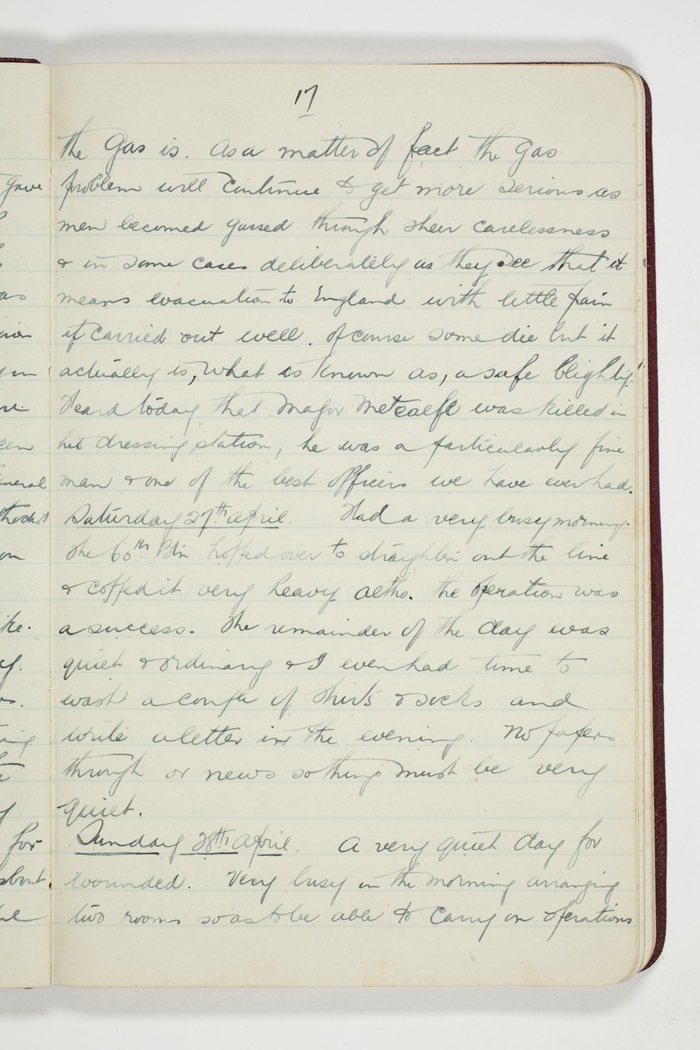 17
the Gas is. As a matter of fact the Gas
problem will continue to get more serious as
men becomed gassed through sheer carelessness
& in some cases deliberately as they see that it
means evacuation to England with little pain
if carried out well. Of course some die but it
actually is, what is known as, a safe blighty.
Heard today that Major Metcalfe was killed in
his dressing station, he was a particularly fine
man & one of the best officers we have ever had.
Saturday 27th April. Had a very busy morning.
The 60th Btn hopped over to straighten out the line
& copped it very heavy altho. the operation was
a success. The remainder of the day was
quiet & ordinary & I even had time to
wash a couple of shirts & socks and
write a letter in the evening. No papers
through or news so things must be very
quiet.
Sunday 28th April. A very quiet day for
wounded. Very busy in the morning arranging
two rooms so as to be able to carry on operations
gave
as
een
eneral
on
for
about